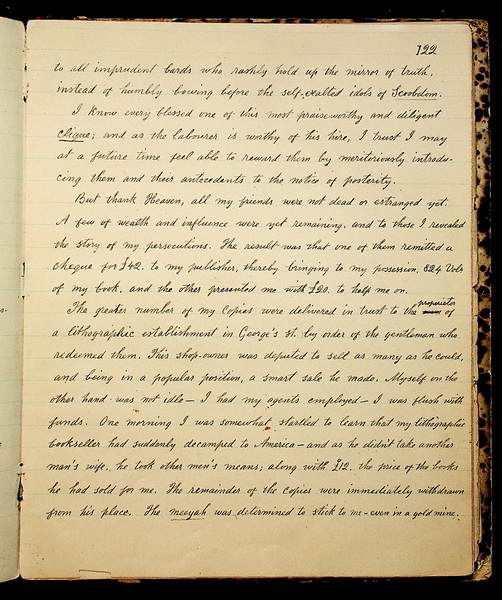 122
to all imprudent bards who rashly hold up the mirror of truth,
instead of humbly bowing before the self-exalted idols of Scobdom.
I know every blessed one of this most praiseworthy and diligent
clique; and as the labourer is worthy of his hire, I trust I may
at a future time feel able to reward them by meritoriously introdu-
cing them and their antecedents to the notice of posterity.
But thank Heaven, all my friends were not dead or estranged yet.
A few of wealth and influence were yet remaining, and to those I revealed
the story of my persecutions. The result was that one of them remitted a
cheque for £42. to my publisher, thereby bringing to my possession, 524 Vols
of my book, and the other presented me with £20. to help me on.
The greater number of my Copies were delivered in trust to the proprietor of
a lithographic establishment in George's St. by order of the gentleman who
redeemed them. This shop-owner was deputed to sell as many as he could,
and being in a popular position, a smart sale he made. Myself on the
other hand was not idle — I had my agents employed — I was flush with
funds. One morning I was somewhat startled to learn that my lithographic
bookseller had suddenly decamped to America — and as he didn't take another
man's wife, he took other men's means; along with £12. the price of the books
he had sold for me. The remainder of the copies were immediately withdrawn
from his place. The meeyah was determined to stick to me — even in a gold mine.